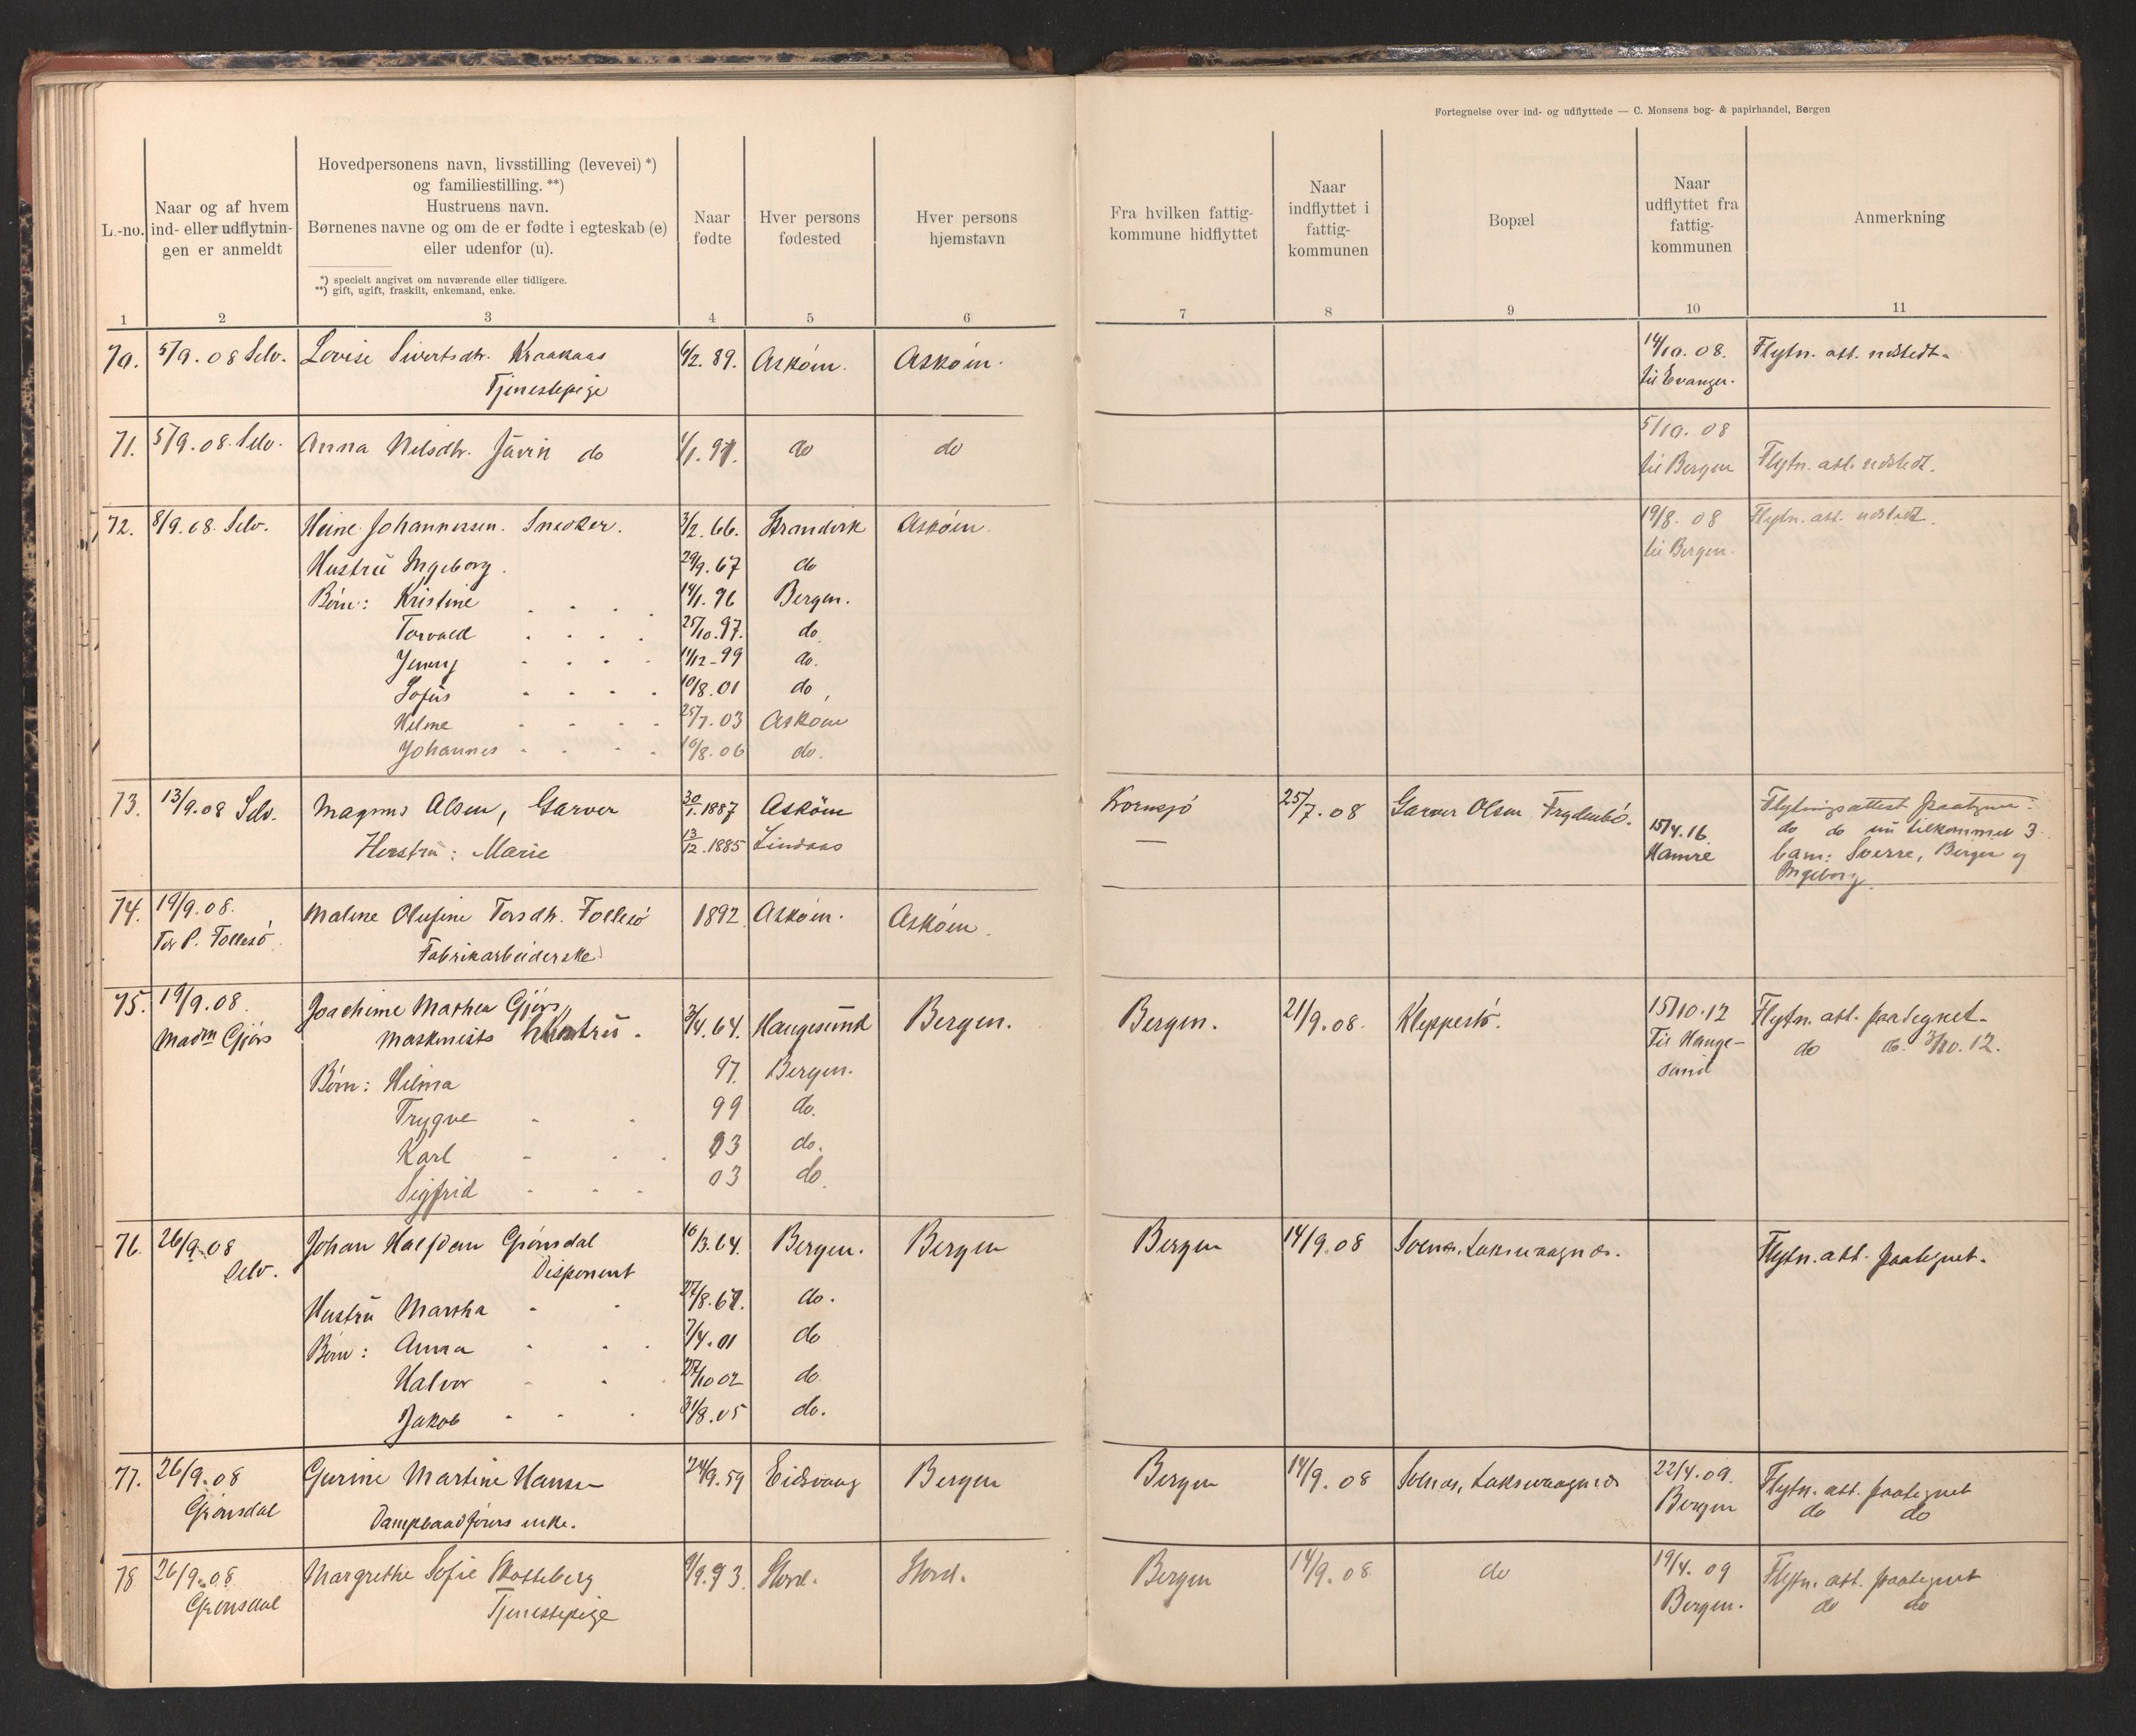 Fortegnelse over ind- og udflyttede — C. Monsens bog- & papirhandel, Bergen
L.-no.
Naar og af hvem
ind- eller udflytnin-
gen er anmeldt
Hovedpersonens navn, livsstilling (levevei) *)
og familiestilling. **)
Hustruens navn.
Børnenes navne og om de er fødte i egteskab (e)
eller udenfor (u).
*) specielt angivet om nuværende eller tidligere.
**) gift, ugift, fraskilt, enkemand, enke.
Naar
fødte
Hver persons
fødested
Hver persons
hjemstavn
Fra hvilken fattig-
kommune hidflyttet
Naar
indflyttet i
fattig-
kommunen
Bopæl
Naar
udflyttet fra
fattig-
kommunen
Anmerkning
1 2 3 4 5 6 7 8 9 10 11
70. 5/9. 08 Selv. Lovise Sivertsdtr. Kraakaas /2. 89. Askøen. Askøen. 14/10. 08. Flytn. att. udstedt.
Tjenestepige til Evanger.
71. 5/9. 08. Selv. Anna Nilsdtr. do 1/1. do do 5/10. 08
til Bergen Flytn. att. udstedt.
72. 8/9. 08. Selv. Heine Johannessen. Snedker. 3/2. 66. Strandvik Askøen. 19/8. 08 Flytn. att. udstedt.
Hustru Ingeborg. 29/9. 67 do til Bergen.
Børn: Kristine 14/1. 96 Bergen.
Torvald 25/10. 97. do
Jenny 11/12 - 99 do.
Sofus 10/8. 01 do
Hilme 25/7. 03 Askøen
Johannes 10/8. 06 do.
73. 13/9. 08 Selv. Magnus Olsen, Garver 30/1. 1887 Askøen Kornsjø 25/7. 08 Garver Olsen Frydenbø. 15/4. 16. Flytningsattest paategnet.
Hustru: Marie 13/12. 1885 Lindaas — Hamre do do nu tilkommer 3
barn: Sverre, Birger og
Ingeborg.
74. 19/9. 08. Malene Olufine Torsdtr. Follesø 1892. Askøen. Askøen.
Tor P. Follesø Fabrikarbeiderske
75. 19/9. 08. Joachime Mathea Gjørs,
Madm Gjørs maskinists hustru. 3/4. 64. Haugesund Bergen. Bergen. 21/9. 08. Kleppestø. 15/10. 12 Flytn. att. paategnet.
Til Hauge- do do. 3/10. 12.
sund
Børn: Hilma 97. Bergen.
Trygve 99 do.
Karl 93 do.
Sigfrid 03 do.
76. 26/9. 08 Johan Halfdan Grønsdal 10/3. 64. Bergen. Bergen Bergen 14/9. 08 Flytn. att. paategnet.
Selv. Disponent
Hustru Martha 27/8. do.
Børn: Anna 7/4. 01 do
Halvor 27/10 02 do
Jakob 31/8. 05 do.
77. 26/9. 08 Gurine Martine Hansen 24/9. 59 Eidsvaag Bergen Bergen 14/9. 08 22/4. 09. Flytn. att. paategnet
Grønsdal Dampbaadførers enke. Bergen do do
78 26/9. 08 Margrethe Sofie /9. 93. Stord. Stord. Bergen 14/9. 08 do 19/4. 09 Flytn. att. paategnet
Grønsdal Tjenestepige Bergen. do do